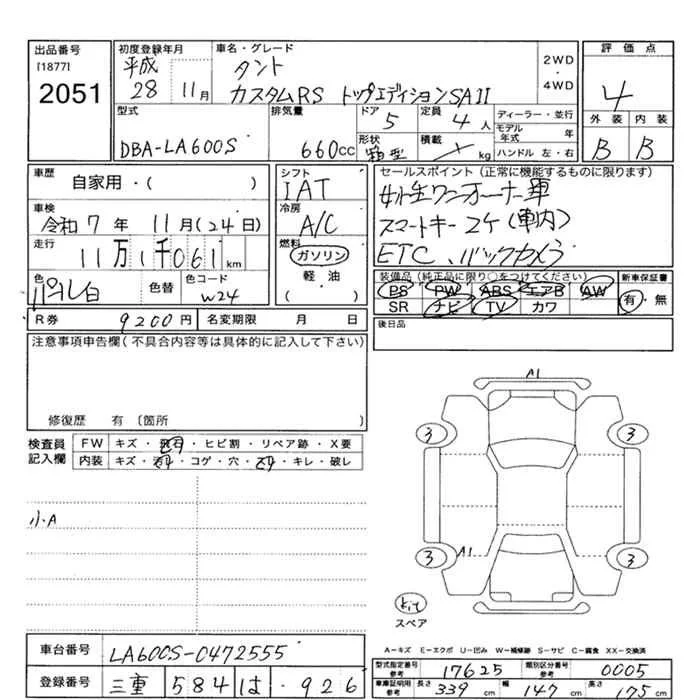 出品番号
[1877]
2051
初度登録年月
平成
28 11月
車名・グレード
タント
カスタムRS トップエディションSAII
2WD
・
4WD
評価点
4
外装 内装
B B
型式
DBA-LA600S
排気量
660cc
ドア
5
形状
箱型
定員
4人
積載
kg
ディーラー・並行
モデル年式 年
ハンドル 左・右
車歴
自家用・( )
車検
令和7年11月(24日)
走行
11万1千061km
色
パール白
色替
色コード
W24
シフト
IAT
冷房
A/C
燃料
ガソリン
軽・油
( )
セールスポイント(正常に機能するものに限ります)
女性ワンオーナー車
スマートキー2ケ(車内)
ETC、バックカメラ
装備品(純正品に限り○をつけてください)
PS PW ABS エアB AW
SR ナビ TV カワ
新車保証書
有・無
R券 9200円
名変期限 月 日
後日品
注意事項申告欄(不具合内容等は具体的に記入して下さい)
修復歴 有 〔箇所 〕
検査員
記入欄
FW キズ・飛石・ヒビ割・リペア跡・X要
内装 キズ・・コゲ・穴・・キレ・破レ
小A
A1
3 3
3 A1 3
スペア
A-キズ E-エクボ U-凹み W-補修跡 S-サビ C-腐食 XX-交換済
車台番号 LA600S-0472555
登録番号 三重 584 は ・926
型式指定番号
参考
17625
類別区分番号
参考
0005
車庫証明用
参考
長さ 339cm 幅 147cm 高さ 175cm